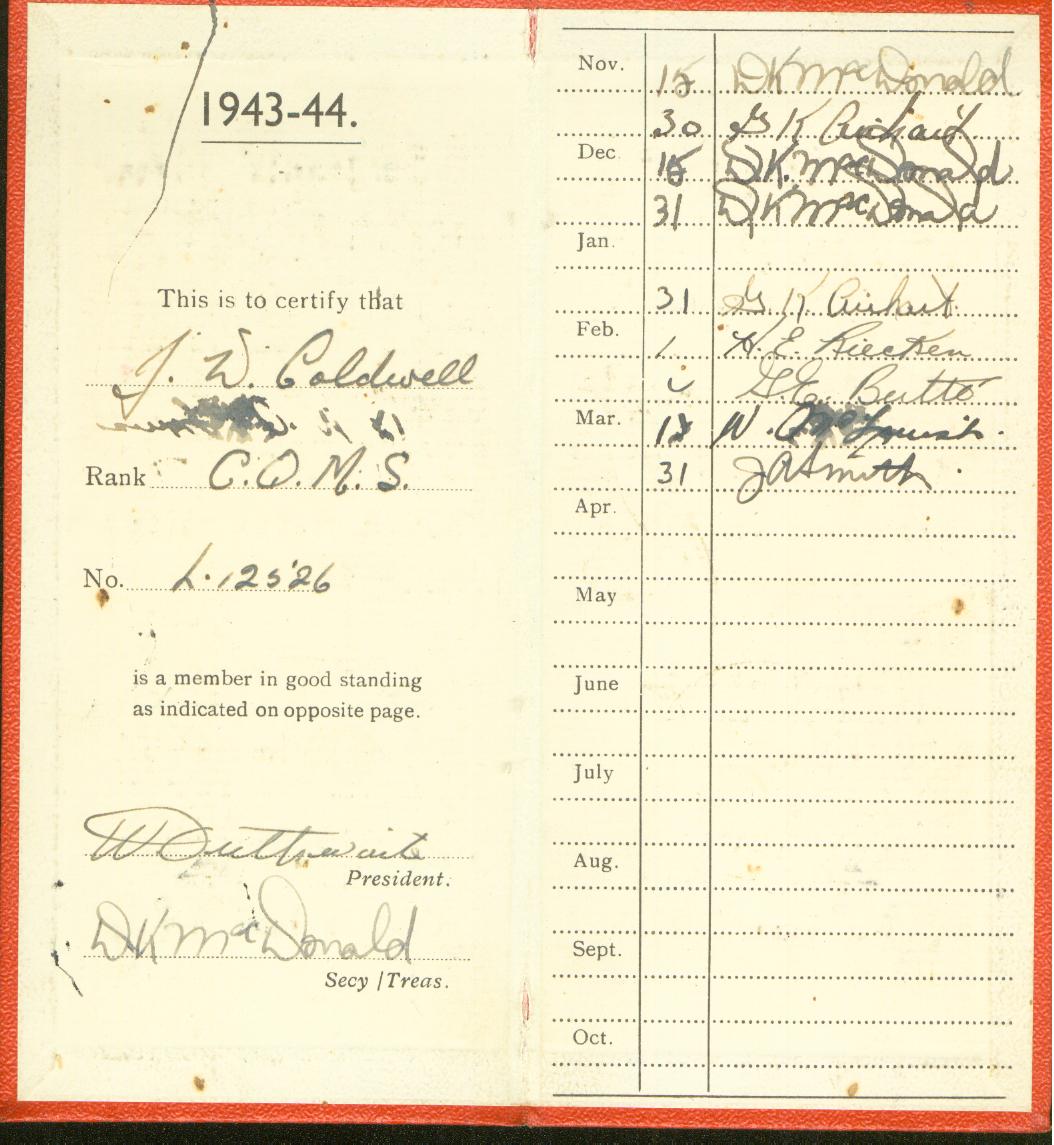 1943-44.
This is to certify that
J. W. Caldwell
Rank C.Q.M.S.
No. L.12526
is a member in good standing
as indicated on opposite page.
President.
DK McDonald
Secy / Treas.
Nov. 15 DK McDonald
30 G K
Dec 15 D.K. McDonald
31 DK McDonald
Jan.
31 G K
Feb. 1 H. E. Riecken
G.E.
Mar. W.
31 JA Smith
Apr.
May
June
July
Aug.
Sept.
Oct.